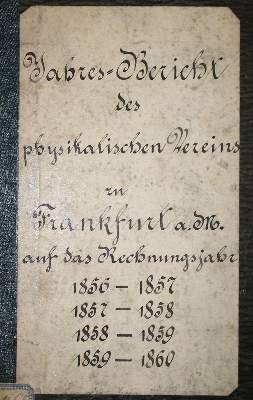 Jahres-Bericht
des
physikalischen Vereins
zu
Frankfurt a. M.
auf das Rechnungsjahr
1856 — 1857
1857 — 1858
1858 — 1859
1859 — 1860